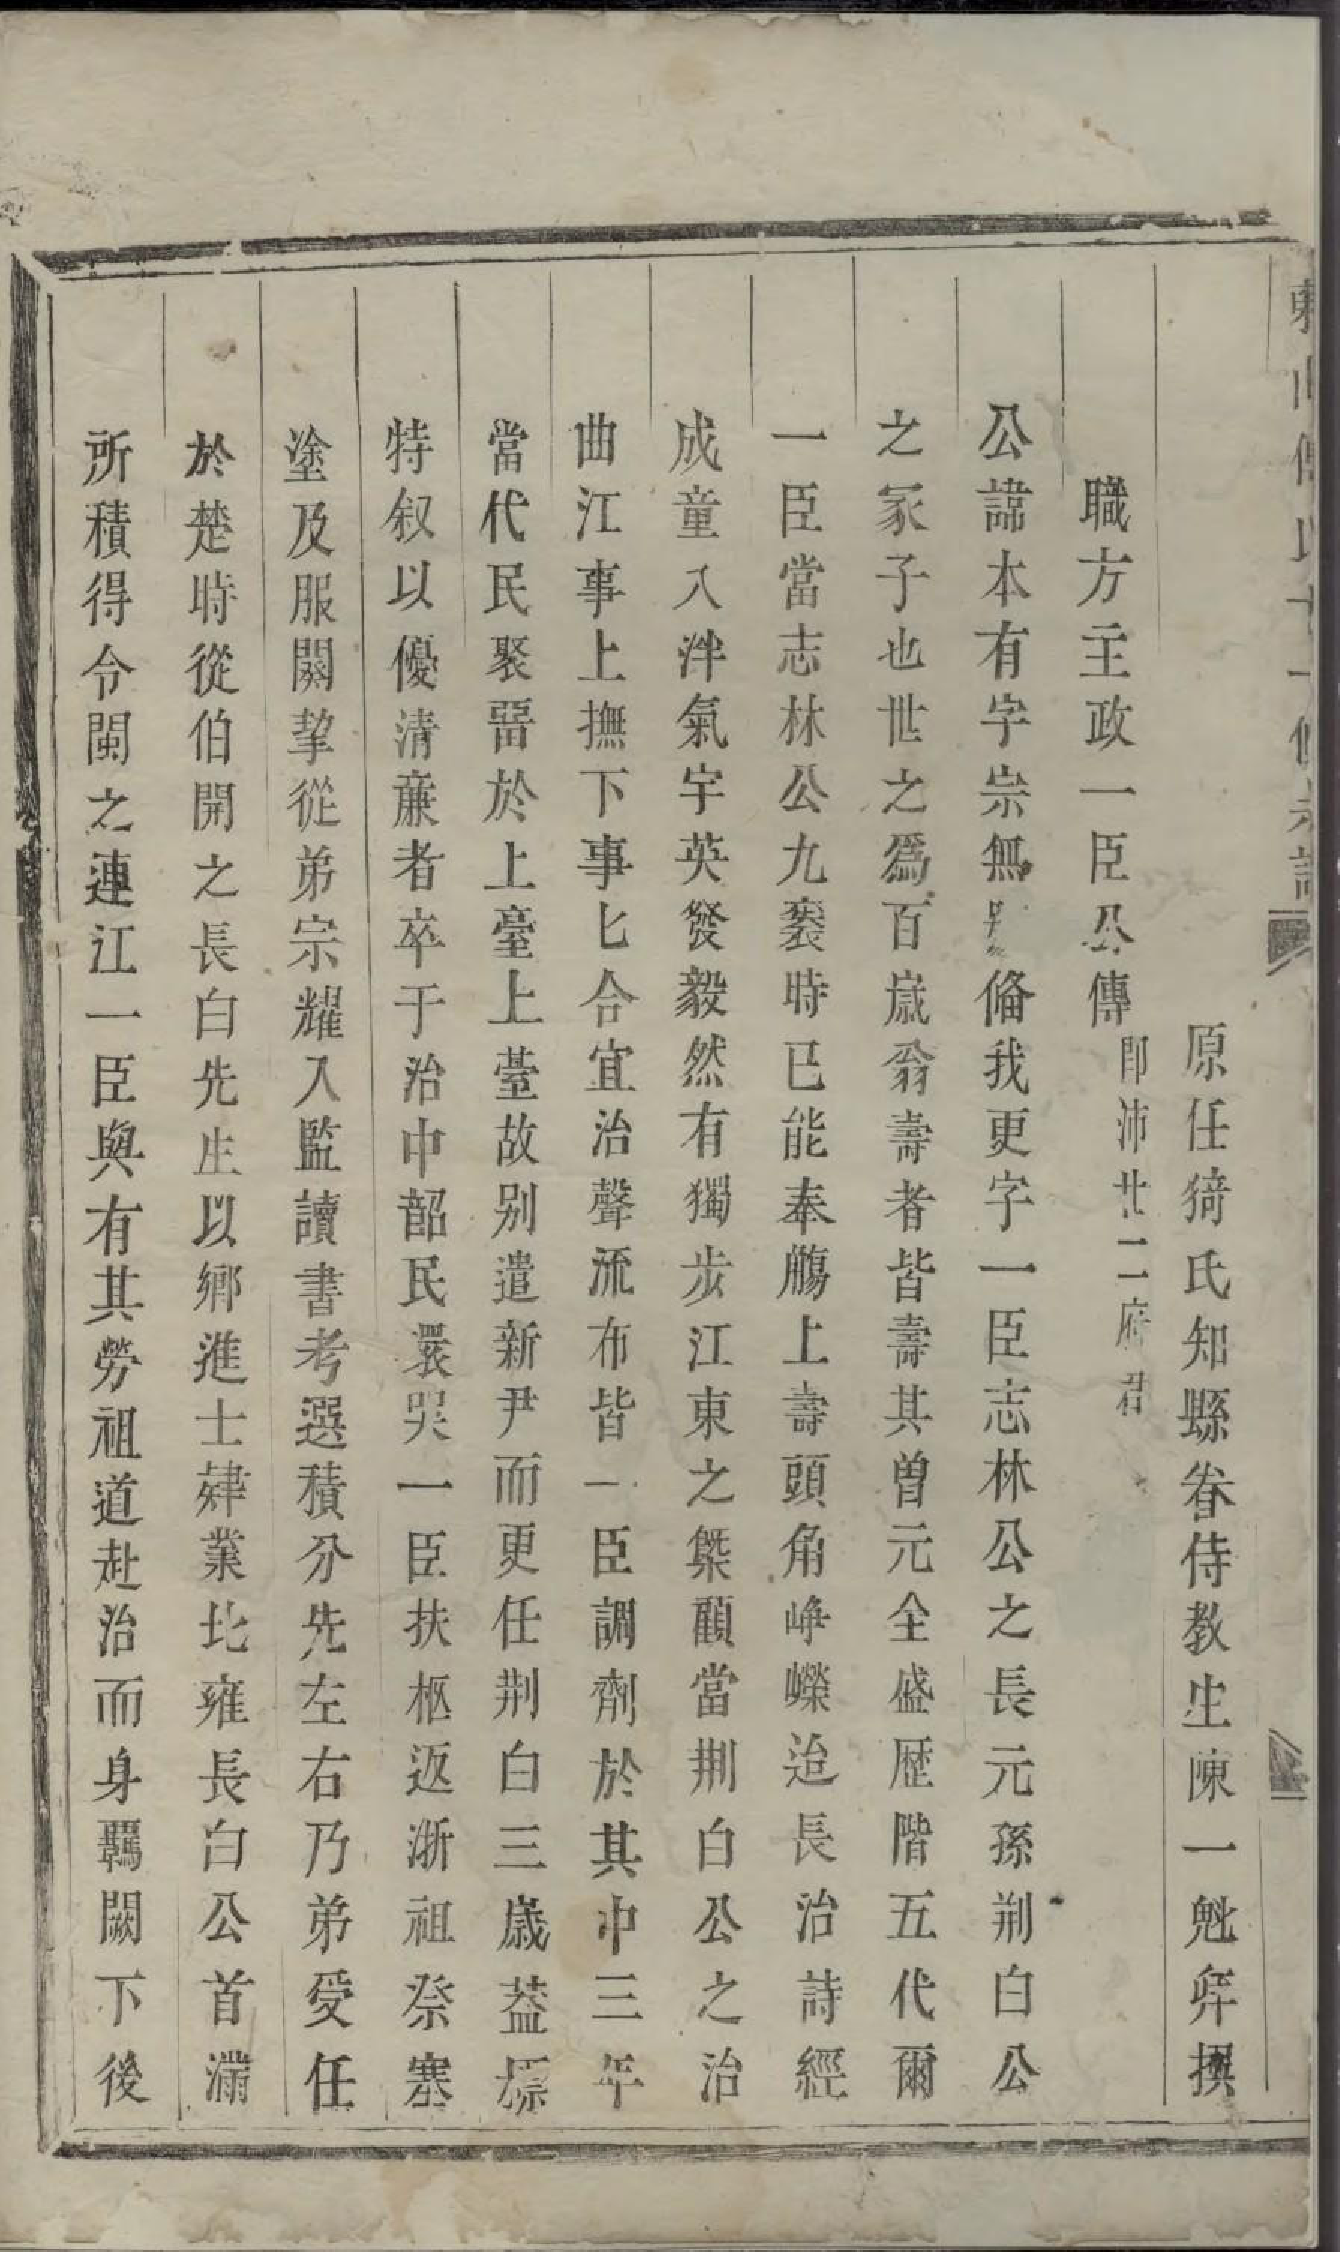 原任猗氏知縣眷侍教生陳一魁弟撰
職方主政一臣公傳 即沛廿二府君
公諱本有字崇無 俻我更字一臣志林公之長元孫荆白公
之冢子也世之爲百嵗翁壽者皆壽其曾元全盛歴階五代爾
一臣當志林公九褎時已能奉觴上壽頭角崢嶸迨長治詩經
成童入泮氣宇英發毅然有獨步江東之槩顧當荆白公之治
曲江事上撫下事匕合宜治聲流布皆一臣調劑於其中三年
當代民聚畱於上臺上薹故别遣新尹而更任荆白三嵗葢標
特叙以優清亷者卒于治中韶民瞏哭一臣扶柩返浙祖祭塞
塗及服闋挈從弟宗耀入監讀書考選積分先左右乃弟受任
於楚時從伯開之長白先生以鄉進士肄業北雍長白公首滿
所積得令閩之連江一臣與有其勞祖道赴治而身羈闕下後